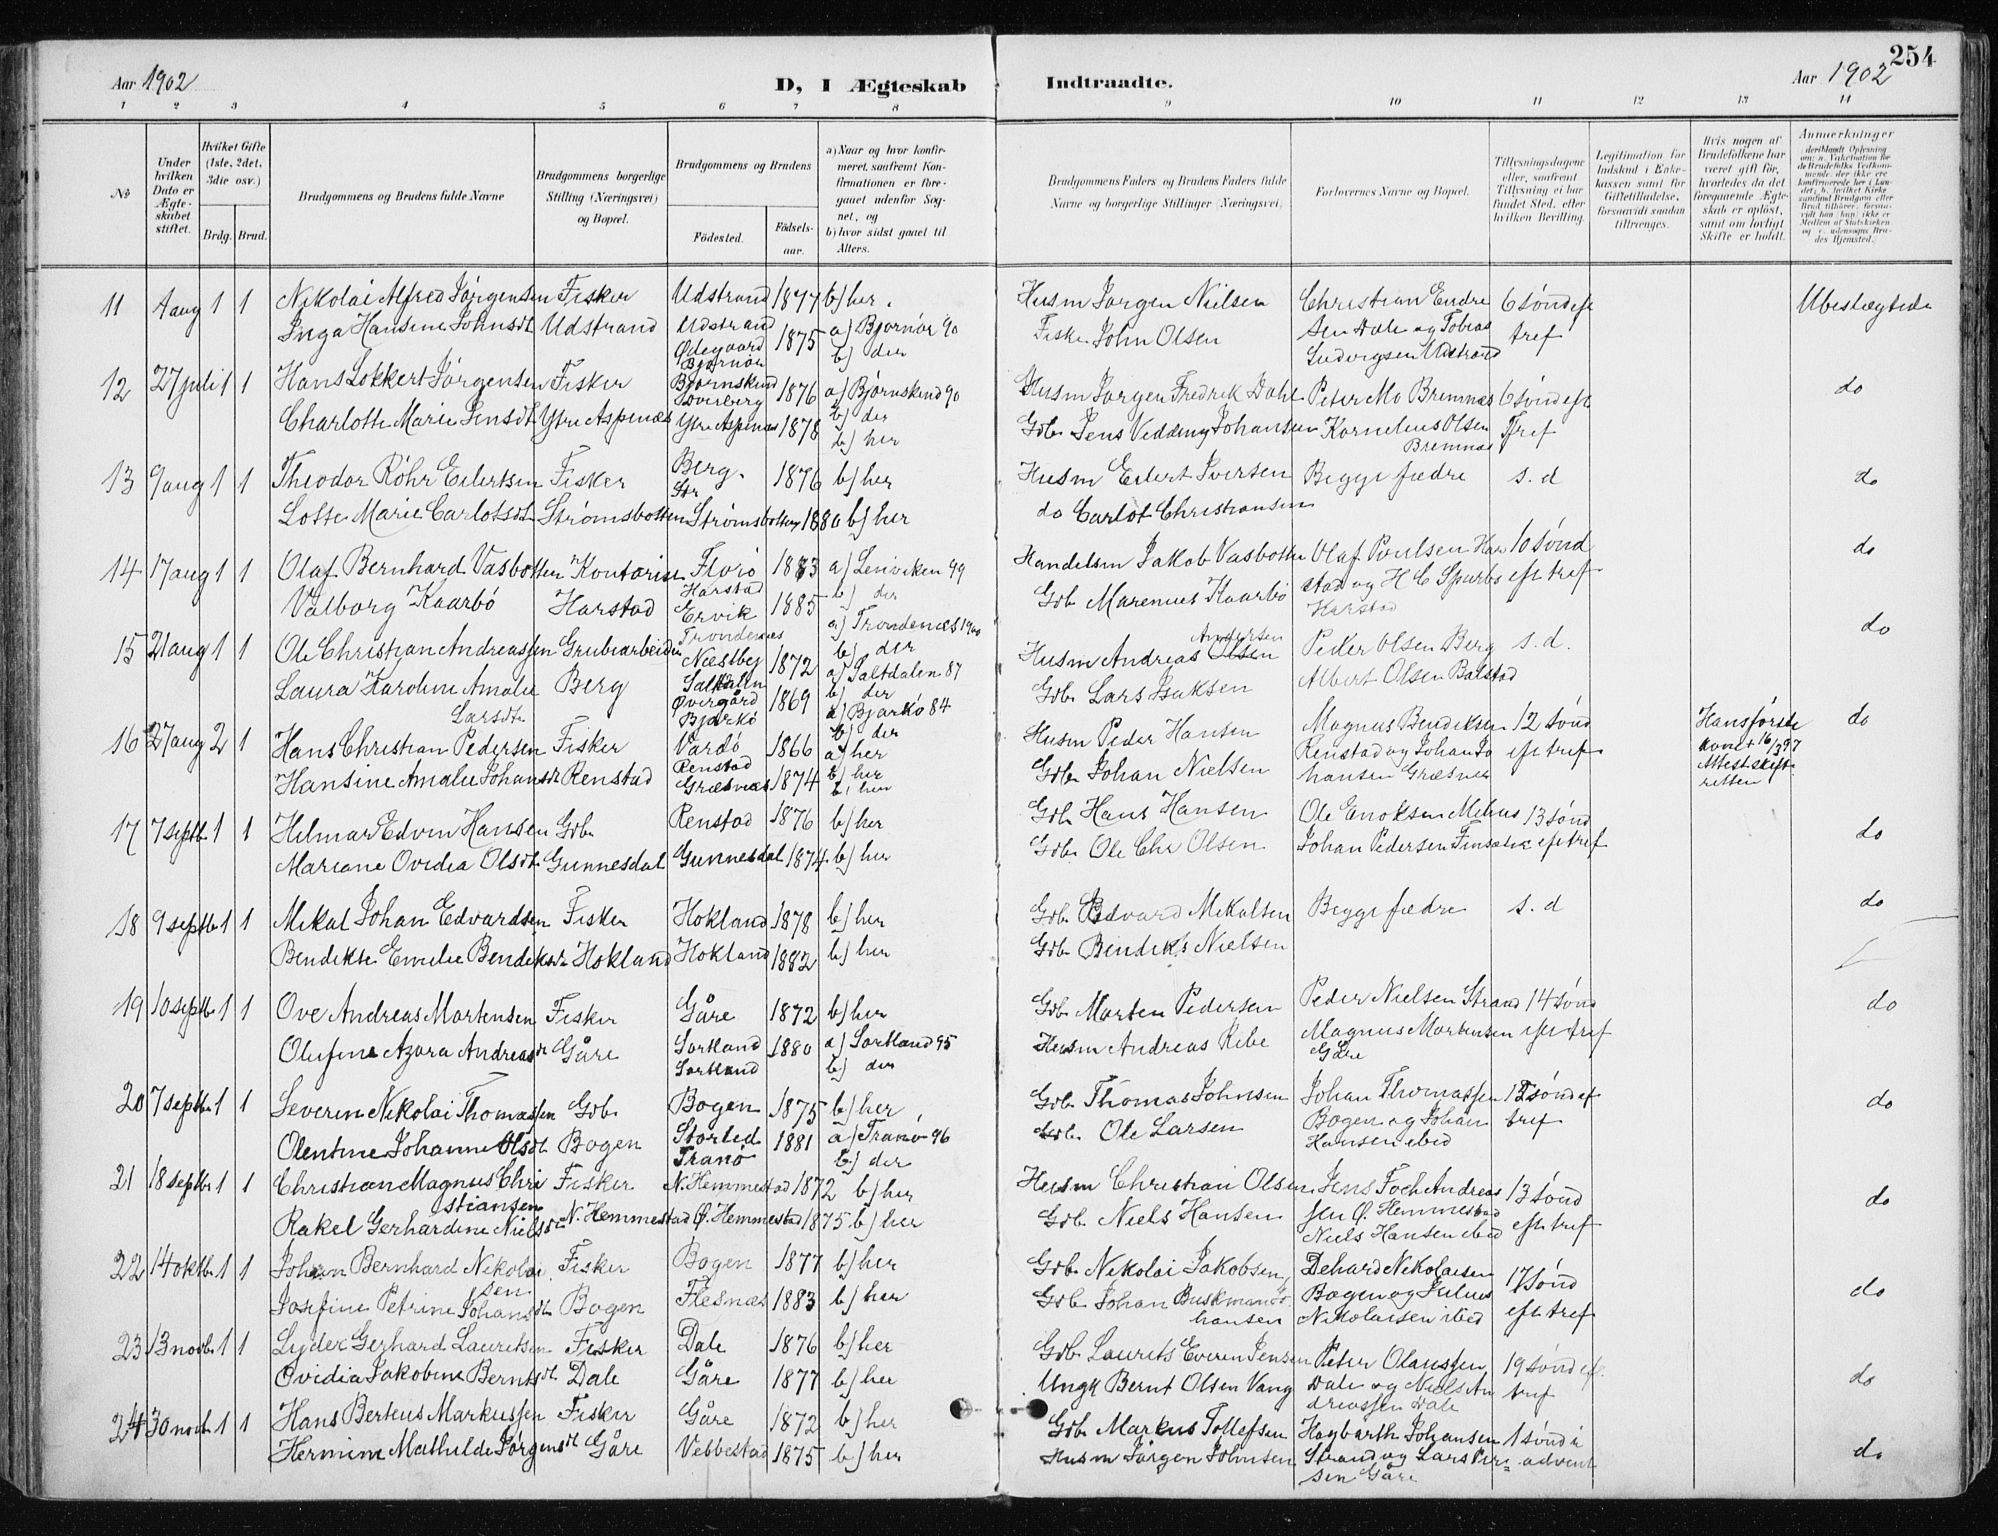 254
Aar 1902
D, I Ægteskab Indtraadte.
Aar 1902
1 2 3 4 5 6 7 8 9 10 11 12 13 14
No
Under hvilken Dato er Ægteskabet stiftet.
Hvilket Gifte (1ste, 2det, 3die osv.)
Brdg. Brud.
Brudgommens og Brudens fulde Navne
Brudgommens borgerlige Stilling (Næringsvei) og Bopæl.
Brudgommens og Brudens
Fødested.
Fødselsaar.
a) Naar og hvor konfirmeret, saafremt Konfirmationen er foregaaet udenfor Sognet, og
b) hvor sidst gaaet til Alters.
Brudgommens Faders og Brudens Faders fulde Navne og borgerlige Stillinger (Næringsvei)
Forlovernes Navne og Bopæl.
Tillysningsdagene eller, saafremt Tillysning ei har fundet Sted, efter hvilken Bevilling.
Legitimation for Indskud i Enkekassen samt for Giftetilladelse, forsaavidt saadan tiltrænges.
Hvis nogen af Brudefolkene har været gift før, hvorledes da det foregaaende Ægteskab er opløst, samt om lovligt Skifte er holdt.
Anmerkninger
11 4 aug 1 1 Nikolai Alfred Jørgensen Fisker Udstrand 1877 b) her. Husm Jørgen Nielsen Christian Endre 6 sønd eft Ubeslægtede
Inga Hansine Johnsdt Udstrand Udstrand 1875 a) Bjørnør 90 Fisker John Olsen sen Dale og Tobias tref
Ødegaard Bjørnør b) der Ludvigsen Udstrand
12 27 juli 1 1 Hans Lokkert Jørgensen Fisker Bjørnskind 1876 a) Bjørnskind 90 Husm Jørgen Fredrik Dahl Peter Mo Bremnæs 6 sønd eft do
b) der
Charlotte Marie Jensdt Ytre Aspenæs Ytre Aspenæs 1878 b) her Gdb Jens Vedding Johansen Kornelius Olsen Bremnæs Tref
13 9 aug 1 1 Theodor Røhr Eilertsen Fisker Berg. 1876 b) her Husm Eilert Iversen Begge fædre s. d do
Lotte Marie Carlotsdt Strømsbotten Strømsbotten 1880 b) her do Carlot Christiansen
14 17 aug 1 1 Olaf Bernhard Vasbotten Kontorist Florø 1883 a) Lenviken 99 Handelsm Jakob Vasbotten Olaf Poulsen Har 10 sønd do
Harstad b) der
Valborg Kaarbø Harstad Ervik 1885 a) Trondenæs 1900 Gdb Marenius Kaarbø stad og H C Spurbs Harstad eft tref
Trondenæs b) der
15 21 aug 1 1 Ole Christian Andreassen Grubearbeider Næstby 1872 a) Saltdalen 87 Husm Andreas Andersen Peder Olsen Berg s. d. do
Saltdalen b) der
Laura Karoline Amalie Larsdt Berg Øvergård 1869 a) Bjarkø 84 Gdb Lars Isaksen Albert Olsen Balstad
Bjarkø b) der
16 27 aug 2 1 Hans Christian Pedersen Fisker Vardø 1866 a) her Husm Peder Hansen Magnus Bendiksen 12 sønd Hans første do
Renstad b) her
Hansine Amalie Johansdt Renstad Græsnæs 1874 b) her Gdb Johan Nielsen Renstad og Johan Jo hansen Græsnes eft tref kone + 16/3 97 Attest skifteretten
17 7 septb 1 1 Hilmar Edvin Hansen Gdb Renstad 1876 b) her Gdb Hans Hansen Ole Enoksen Melhus 13 sønd do
Mariane Ovidia Olsdt. Gunnesdal Gunnesdal 1874. b) her Gdb Ole Chr Olsen Johan Pedersen eft tref
18 9 septb 1 1 Mikal Johan Edvardsen Fisker Hokland 1878 b) her Gdb Edvard Mikalsen Begge fædre s. d do
Bendikte Emelie Bendiksdt Hokland Hokland 1882 b) her Gdb Bendiks Nielsen
19 10 septb 1 1 Ove Andreas Mortensen Fisker Gåre 1872 b) her Gdb Morten Pedersen Peder Nielsen Strand 14 sønd do
Olufine Azora Andreasdt Gåre Sortland 1880 a) Sortland 95 Husm Andreas Ribe Magnus Mortensen Gåre eft tref
Sortland b) der
20 7 septbr 1 1 Severin Nikolai Thomassen Gdb. Bogen 1875 b) her Gdb Thomas Johnsen Johan Thomassen 13 sønd ef do
Olentine Johanne Olsdt Bogen Storled 1881 a) Tranø 96 Gdb. Ole Larsen Bogen og Johan tref
Tranø b) der Hansen ibid
21 18 septbr 1 1 Christian Magnus Chri Fisker N. Hemmestad 1872 b) her Husm Christian Olsen Jens Foch Andreas 13 sønd do
stiansen
Rakel Gerhardine Nielsdt N. Hemmestad Ø. Hemmestad 1875 b) her Gdb. Niels Hansen sen Ø. Hemmestad Niels Hansen ibid eft tref
22 14 oktb 1 1 Johan Bernhard Nikolai Fisker Bogen 1877 b) her Gdb. Nikolai Jakobsen Dehard Nikolaisen 17 sønd do
sen
Josefine Petrine Johansdt Bogen Flesnæs 1883 b) her Gdb Johan Buskmand Jo hansen Bogen og Julius Nikolaisen ibid eft tref
23 13 novb 1 1 Lyder Gerhard Lauritsen Fisker Dale 1876 b) her Gdb Laurits Everen Jensen Peter Olaussen 19 sønd ef. do
Ovidia Jakobine Berntsdt Dale Gåre 1877 b) her Ungk Bernt Olsen Vang Dale og Niels An dreassen Dale tref
24 30 novb 1 1 Hans Berteus Markussen Fisker Gåre 1872 b) her Gdb. Markus Tollefsen Hagbarth Johansen 1 sønd i do
Hermine Mathilde Jørgensdt Gåre Vebbestad 1875 b) her Husm Jørgen Johnsen Strand og Lars Peer= sen Gåre advent